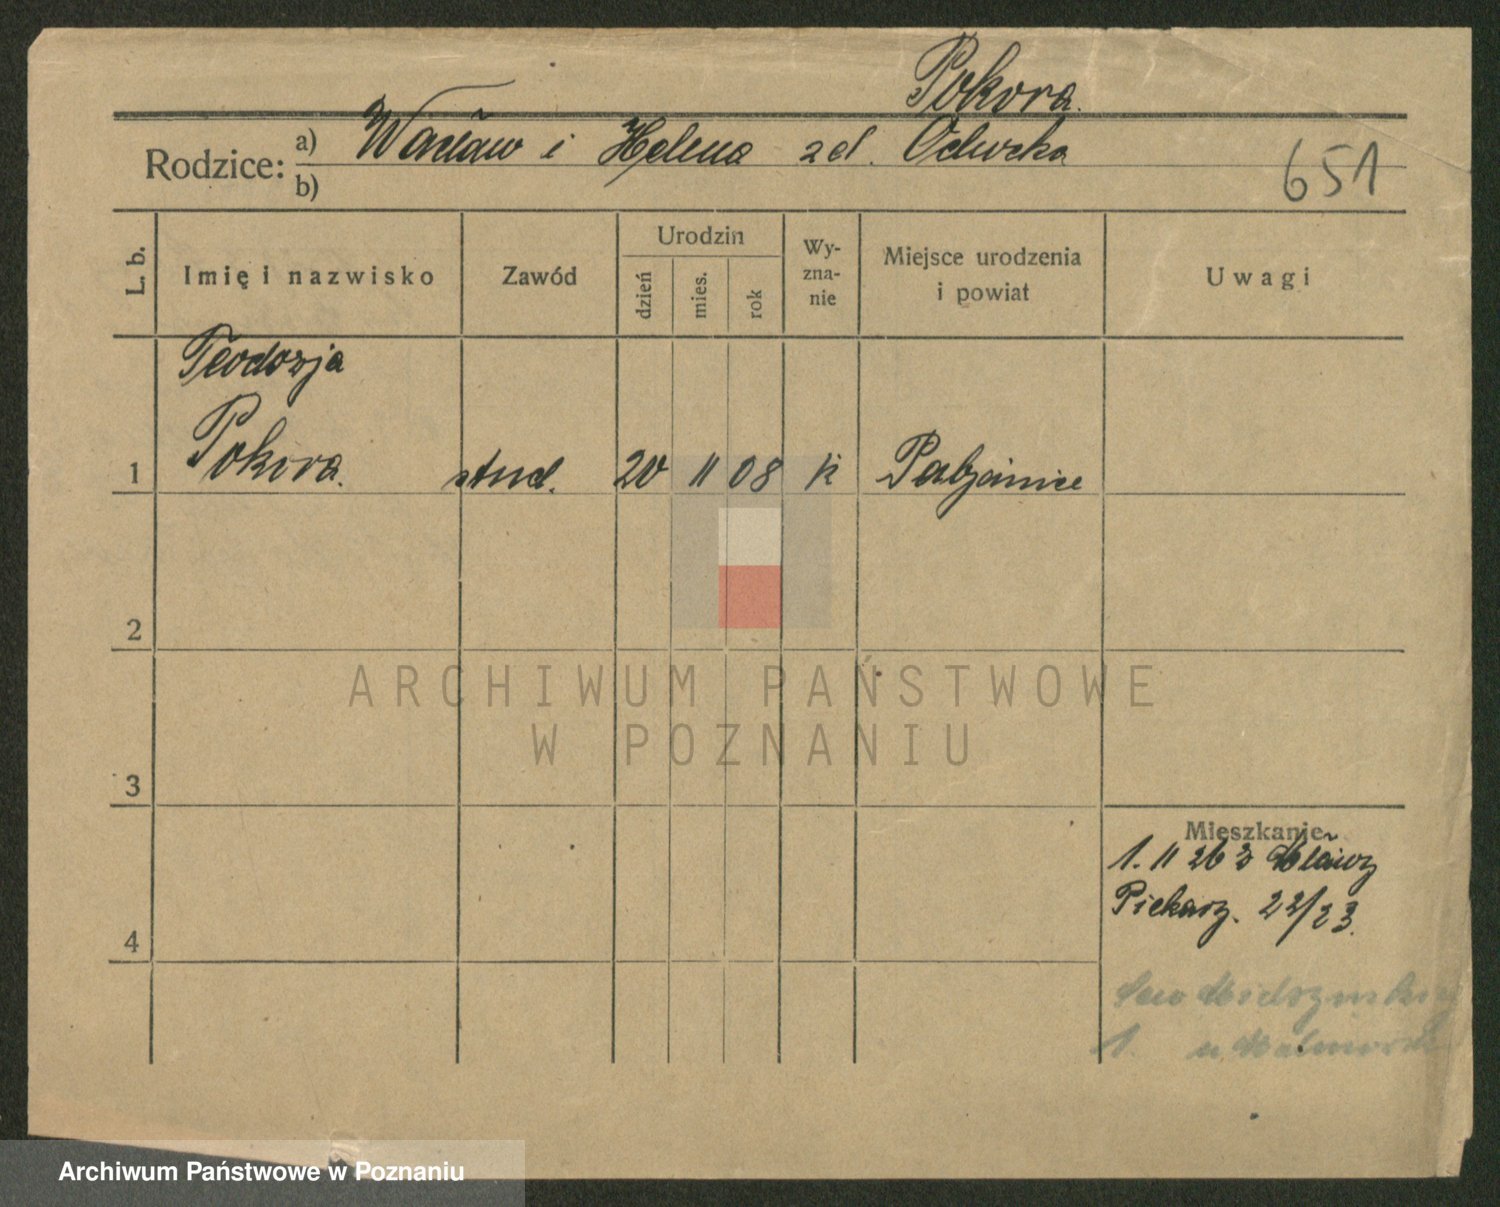 Pokora.
Rodzice: a) Wacław i Helena zd.
b)
651
L. b.
Imię i nazwisko
Zawód
Urodzin
dzień
mies.
rok
Wy-
zna-
nie
Miejsce urodzenia
i powiat
Uwagi
Teodozja
1 Pokora. stud. 20 11 08 k Pabjanice
2
3
4
Mieszkanie
1. 11 26 z
Piekarz. 22/23.
1. u
ARCHIWUM PAŃSTWOWE
W POZNANIU
Archiwum Państwowe w Poznaniu